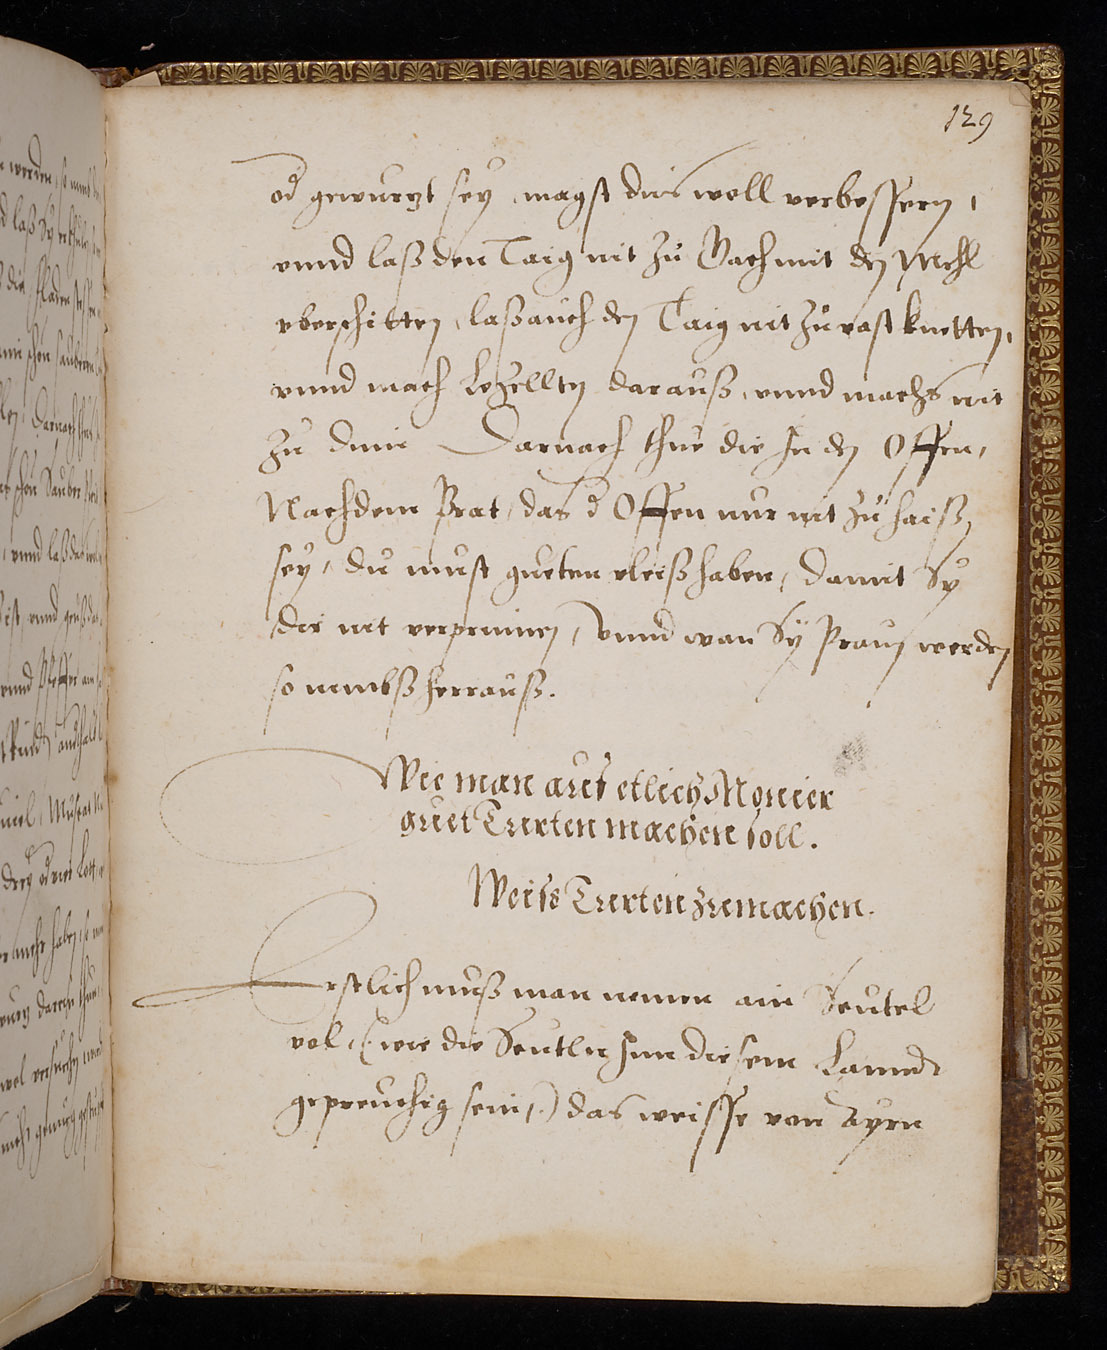 129
od gewurzt sey, magst dus woll verbessern,
vnnd laß den Taig nit zu Vach mit den Mehl
vberschitten, laß auch den Taig nit zu vast knetten,
vnnd mach Lezellten darauß, vnnd machs nit
zu dinn Darnach thue die In den Offen,
Nachdem Prat, das d Offen nur nit zu haiß
sey, du must gueten vleiß haben, damit Sy
dir nit verprinnen, Vnnd wan Sy Praun werden
so nimbß herrauß.
Wie man auf etlich Monier
guet Turten machen soll.
Weiss Turten zumachen.
Erstlich muß man nemen ain Seutel
vol, (wie die Seutln Inn diesem Lannd
gepreuchig sein,) das weisse von Ayrn